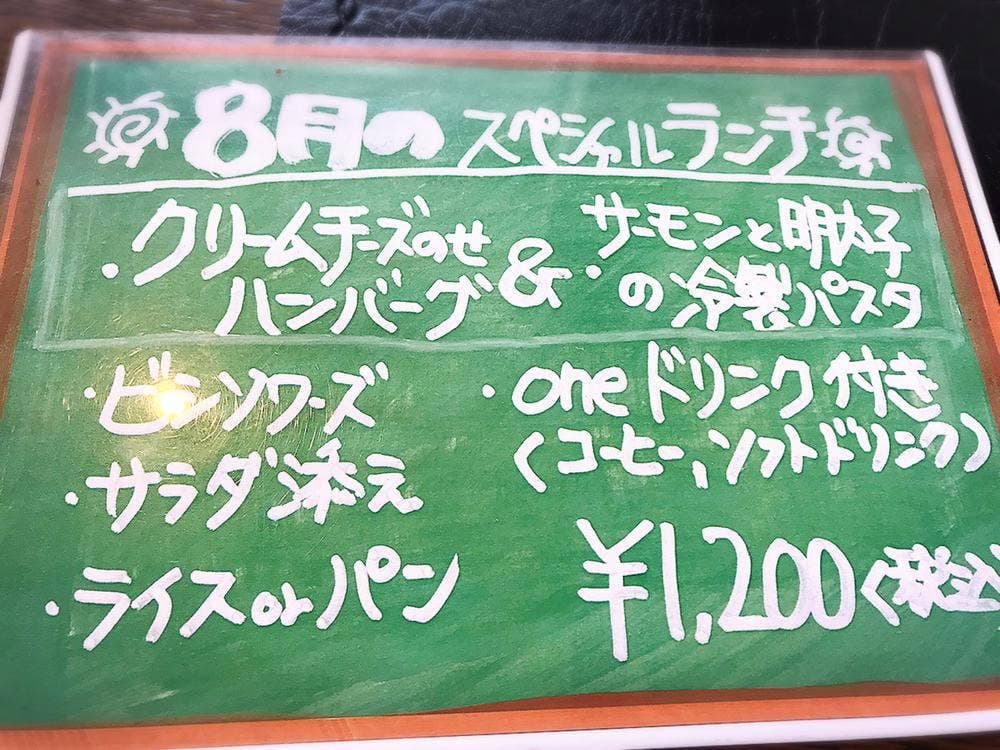 8月のスペシャルランチ
・クリームチーズのせ
ハンバーグ
&
・サーモンと明太子
の冷製パスタ
・ビシソワーズ
・サラダ添え
・ライスorパン
・oneドリンク付き
(コーヒー、ソフトドリンク)
¥1,200(税込)